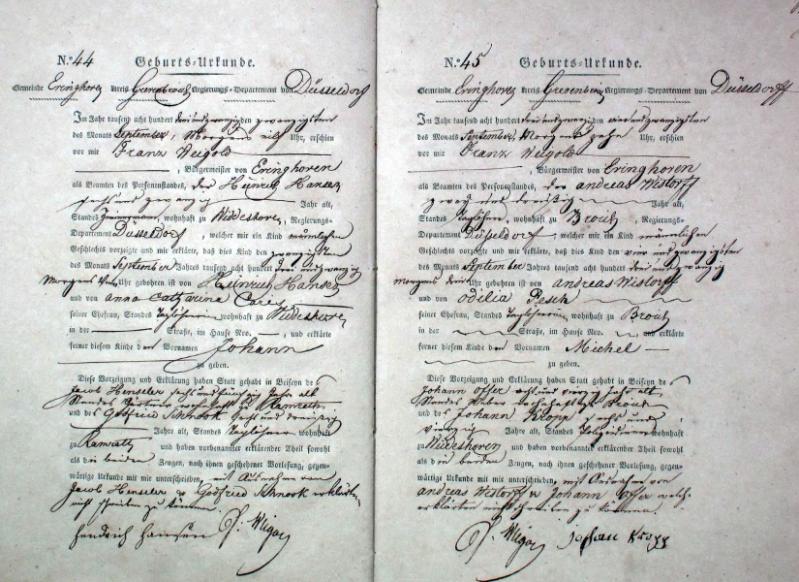 N.° 44 Geburts-Urkunde.
Gemeinde Evinghoven Kreis Grevenbroich Regierungs-Departement von Düsseldorf
Im Jahr tausend acht hundert drei und zwanzig den zwanzigsten
des Monats September, Morgens Uhr, erschien
vor mir Franz Weigold
, Bürgermeister von Evinghoven
als Beamten des Personenstandes, der Heinrich Hansen
sechs und zwanzig Jahr alt,
Standes wohnhaft zu Wideshoven, Regierungs-
Departement Düsseldorf, welcher mir ein Kind männlichen
Geschlechts vorzeigte und mir erklärte, daß dies Kind den zwanzigsten
des Monats September Jahres tausend acht hundert drei und zwanzig
Morgens Uhr gebohren ist von Heinrich Hansen
und von anna Catharina
seiner Ehefrau, Standes wohnhaft zu Wideshoven
in der Straße, im Hause Nro. , und erklärte
ferner diesem Kinde den Vornamen Johann
zu geben.
Diese Vorzeigung und Erklärung haben Statt gehabt in Beiseyn des
Jacob Henseler sechs und fünfzig Jahr alt
Standes wohnhaft zu Ramrath
und des Godfried Schnook sechs und dreißig
Jahr alt, Standes Taglöhner wohnhaft
zu Ramrath und haben vorbenannter erklärender Theil sowohl
als die beiden Zeugen, nach ihnen geschehener Vorlesung, gegen-
wärtige Urkunde mit mir unterschrieben, mit Ausnahme von
Jacob Henseler u Godfried Schnook erklärten
nicht schreiben zu können.
Hendrich Hansen
N.° 45 Geburts-Urkunde.
Gemeinde Evinghoven Kreis Grevenbroich Regierungs-Departement von Düsseldorff
Im Jahr tausend acht hundert drei und zwanzig den vier und zwanzigsten
des Monats September, Morgens zehn Uhr, erschien
vor mir Franz Weigold
, Bürgermeister von Evinghoven
als Beamten des Personenstandes, der andreas Wistorff
zwey und dreißig Jahr alt,
Standes Taglöhner, wohnhaft zu Broich, Regierungs-
Departement Düsseldorf, welcher mir ein Kind männlichen
Geschlechts vorzeigte und mir erklärte, daß dies Kind den vier und zwanzigsten
des Monats September Jahres tausend acht hundert drei und zwanzig
morgens drei Uhr gebohren ist von andreas Wistorff
und von Odilia Pesch
seiner Ehefrau, Standes wohnhaft zu Broich
in der Straße, im Hause Nro. und erklärte
ferner diesem Kinde den Vornamen Michel
zu geben.
Diese Vorzeigung und Erklärung haben Statt gehabt in Beiseyn des
Johann Offer acht und vierzig Jahr alt
Standes wohnhaft zu Broich
und des Johann Kropp sechs und
vierzig Jahr alt, Standes wohnhaft
zu Wideshoven und haben vorbenannter erklärender Theil sowohl
als die beiden Zeugen, nach ihnen geschehener Vorlesung, gegen-
wärtige Urkunde mit mir unterschrieben, mit Ausnahme von
andreas Wistorff u Johann Offer welche
erklärten nicht schreiben zu können.